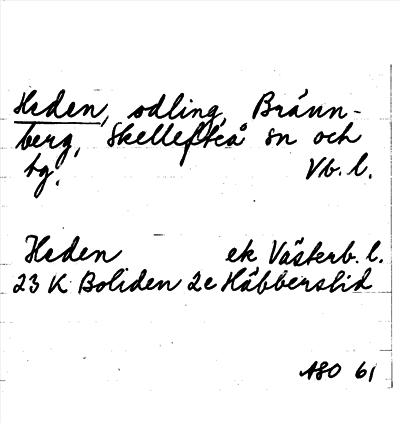 Heden, odling, Bränn-
berg, Skellefteå sn och
tg. Vb. l.
Heden ek Västerb. l.
23 K Boliden 2e Häbberslid
ASO 61